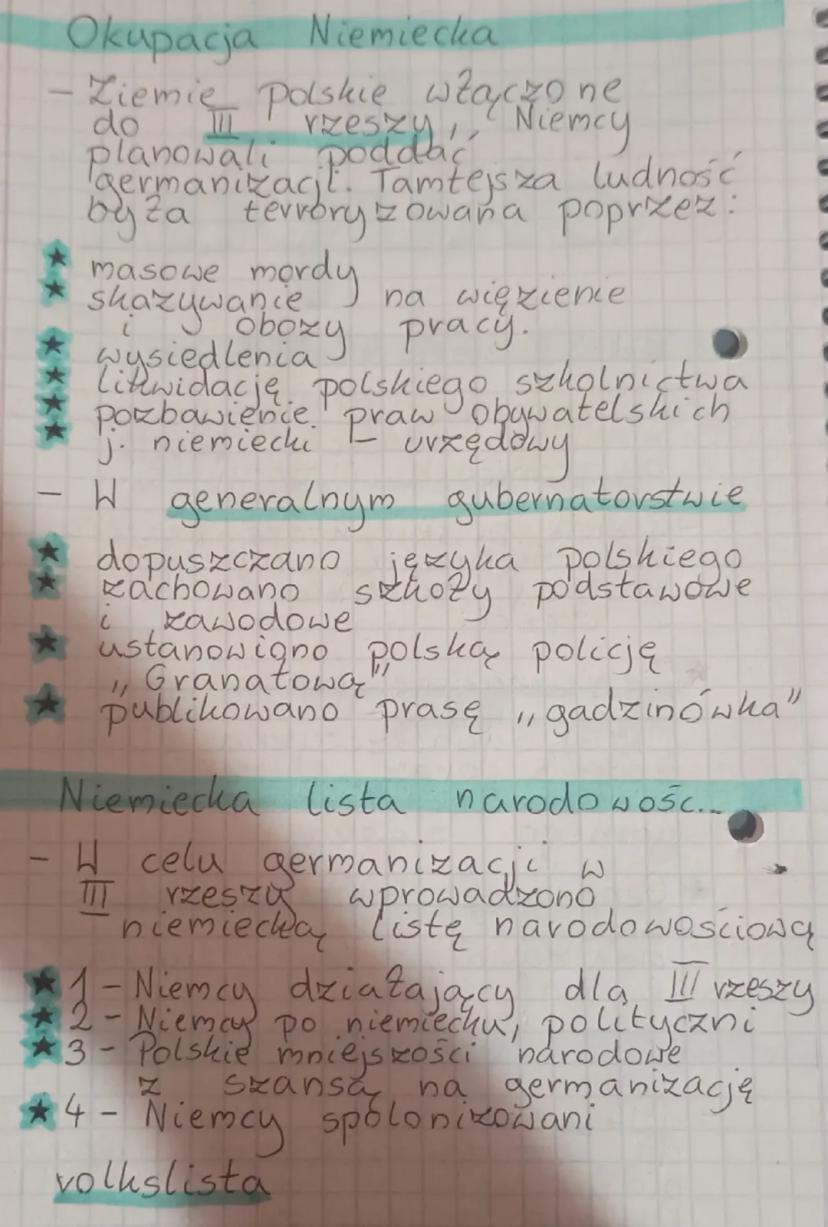 Okupacja Niemiecka
- Ziemie polskie włączone
do III rzeszy,, Niemcy
planowali poddać
germanizacji. Tamtejsza ludność
była terroryzowana poprzez:
★ masowe mordy
★ skazywanie na więzienie
i obozy pracy.
★ wysiedlenia
★ likwidację polskiego szkolnictwa
★ pozbawienie praw obywatelskich
★ j. niemiecki - urzędowy
- W generalnym gubernatorstwie
★ dopuszczano języka polskiego
★ zachowano szkoły podstawowe
i zawodowe
★ ustanowiono polską policję
„Granatową"
★ publikowano prasę „gadzinówka"
Niemiecka lista narodowośc...
- W celu germanizacji w
III rzeszy wprowadzono
niemiecką listę narodowościową
★ 1 - Niemcy działający dla III rzeszy
★ 2 - Niemcy po niemiecku, polityczni
★ 3 - Polskie mniejszości narodowe
z szansą na germanizację
★ 4 - Niemcy spolonizowani
volkslista